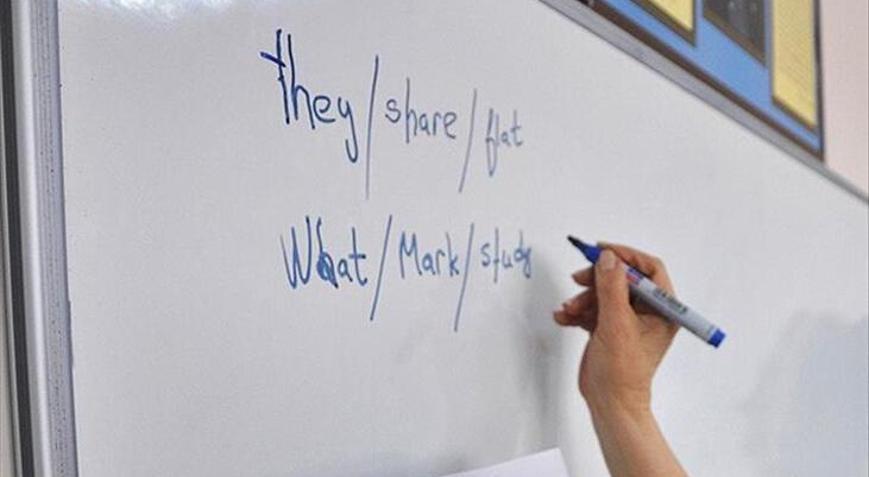 They/share/flat
What/Mark/study